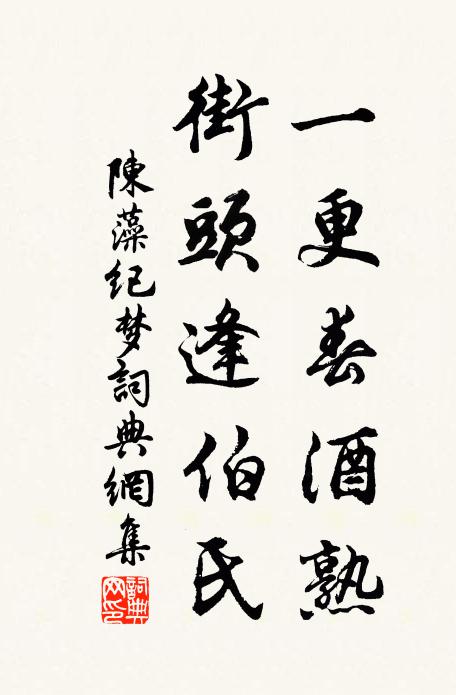 一更春酒熟
街頭逢伯氏
陳藻纪梦詞典網集
詞典網印